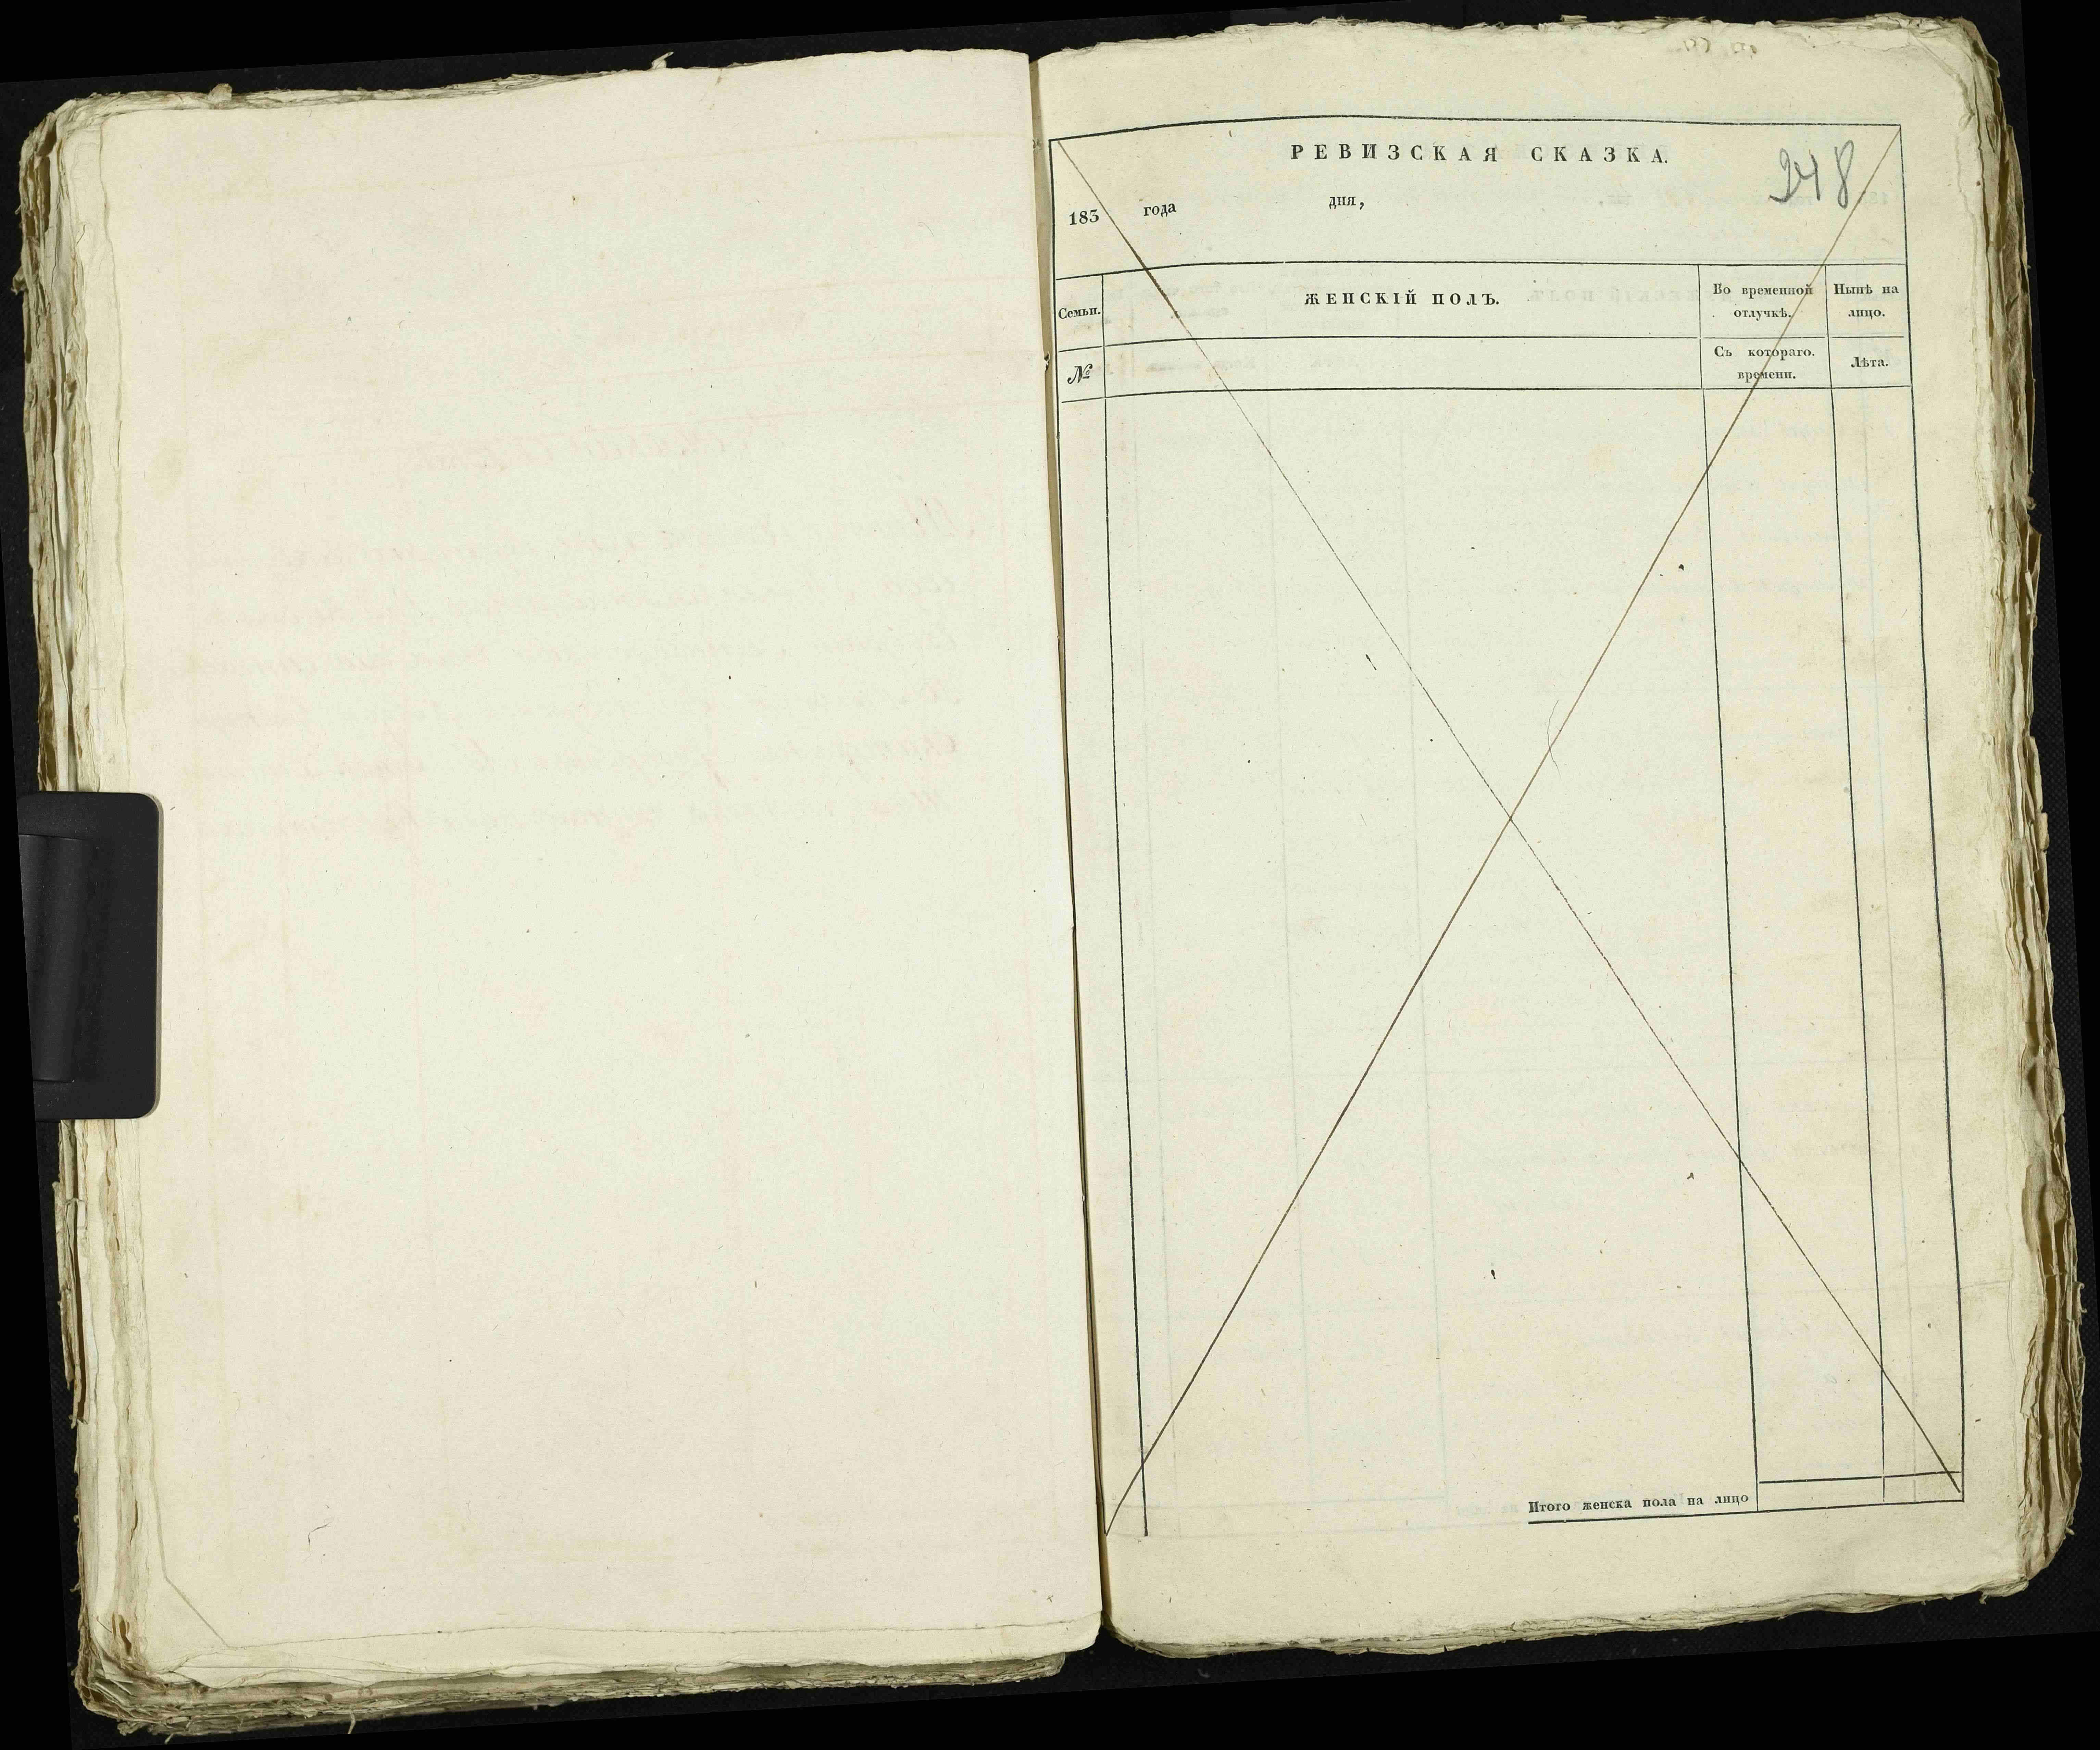 РЕВИЗСКАЯ СКАЗКА.
248
183 года дня,
Семьи.
ЖЕНСКІЙ ПОЛЪ.
Во временной отлучкѣ.
Нынѣ на лицо.
№
Съ котораго. времени.
Лѣта.
Итого женска пола на лицо